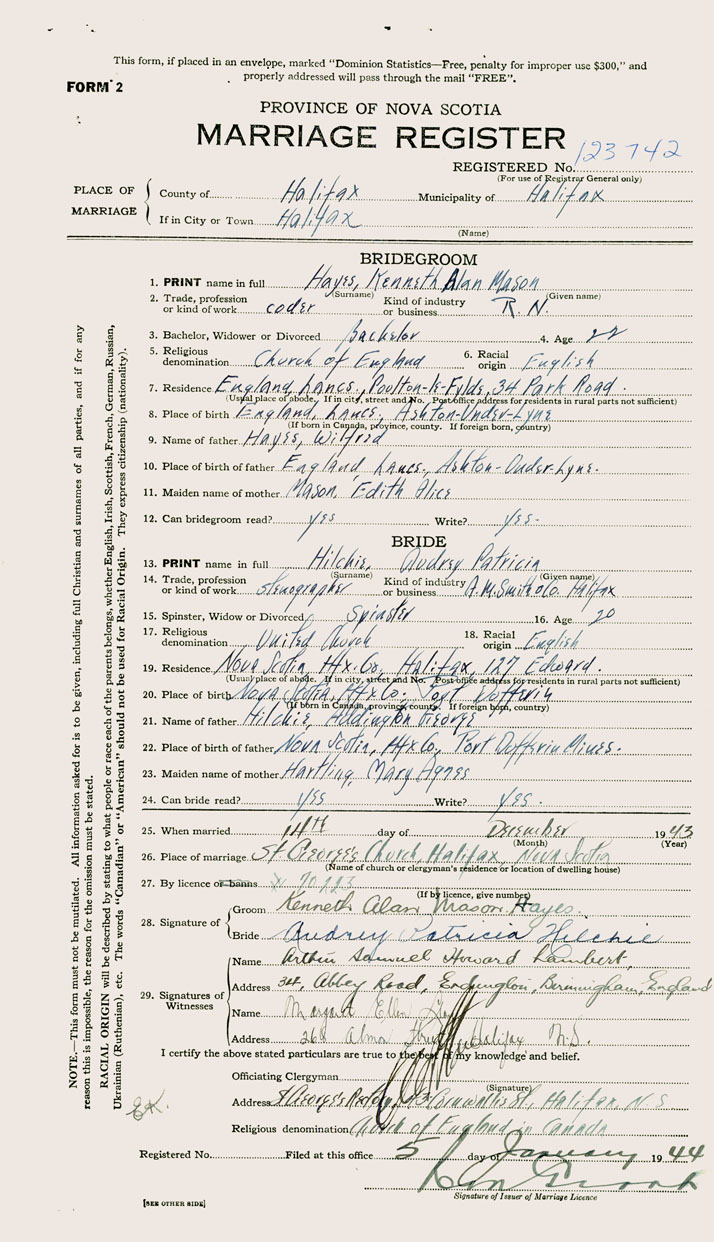 This form, if placed in an envelope, marked "Dominion Statistics—Free, penalty for improper use $300," and
properly addressed will pass through the mail "FREE".
FORM 2
PROVINCE OF NOVA SCOTIA
MARRIAGE REGISTER
REGISTERED No. 123742
(For use of Registrar General only)
PLACE OF MARRIAGE
County of Halifax Municipality of Halifax
If in City or Town Halifax
(Name)
BRIDEGROOM
1. PRINT name in full Hayes, Kenneth Alan Mason
(Surname) (Given name)
2. Trade, profession or kind of work coder Kind of industry or business R.N.
3. Bachelor, Widower or Divorced Bachelor 4. Age 22
5. Religious denomination Church of England 6. Racial origin English
7. Residence England, Lancs., Poulton-le-Fylde, 34 Park Road.
(Usual place of abode. If in city, street and No. Post office address for residents in rural parts not sufficient)
8. Place of birth England, Lancs., Ashton-Under-Lyne
(If born in Canada, province, county. If foreign born, country)
9. Name of father Hayes, Wilfred
10. Place of birth of father England Lancs., Ashton-Under-Lyne.
11. Maiden name of mother Mason Edith Alice
12. Can bridegroom read? yes Write? yes.
BRIDE
13. PRINT name in full Hilchie, Audrey Patricia
(Surname) (Given name)
14. Trade, profession or kind of work stenographer Kind of industry or business A.M. Smith Co. Halifax
15. Spinster, Widow or Divorced Spinster 16. Age 20
17. Religious denomination United Church 18. Racial origin English
19. Residence Nova Scotia, Hfx. Co. Halifax, 127 Edward.
(Usual place of abode. If in city, street and No. Post office address for residents in rural parts not sufficient)
20. Place of birth Nova Scotia, Hfx Co., Port Dufferin
(If born in Canada, province, county. If foreign born, country)
21. Name of father Hilchie, Addington George
22. Place of birth of father Nova Scotia, Hfx Co, Port Dufferin Mines.
23. Maiden name of mother Hartling, Mary Agnes
24. Can bride read? yes Write? yes.
25. When married 14th day of December 1943
(Month) (Year)
26. Place of marriage St George's Church, Halifax, Nova Scotia
(Name of church or clergyman's residence or location of dwelling house)
27. By licence or banns
(If by licence, give number)
28. Signature of
Groom Kenneth Alan Mason Hayes.
Bride Audrey Patricia Hilchie
29. Signatures of Witnesses
Name Arthur Samuel Howard Lambert,
Address 34, Abbey Road, Erdington, Birmingham, England
Name Margaret Ellen
Address 260 Almon Street Halifax N.S.
I certify the above stated particulars are true to the best of my knowledge and belief.
Officiating Clergyman
(Signature)
Address St George's Rectory, Cornwallis St, Halifax, N S
Religious denomination Church of England in Canada
Registered No. Filed at this office 5 day of January 1944
Signature of Issuer of Marriage Licence
[SEE OTHER SIDE]
NOTE.—This form must not be mutilated. All information asked for is to be given, including full Christian and surnames of all parties, and if for any
reason this is impossible, the reason for the omission must be stated.
RACIAL ORIGIN will be described by stating to what people or race each of the parents belongs, whether English, Irish, Scottish, French, German, Russian,
Ukrainian (Ruthenian), etc. The words "Canadian" or "American" should not be used for Racial Origin. They express citizenship (nationality).